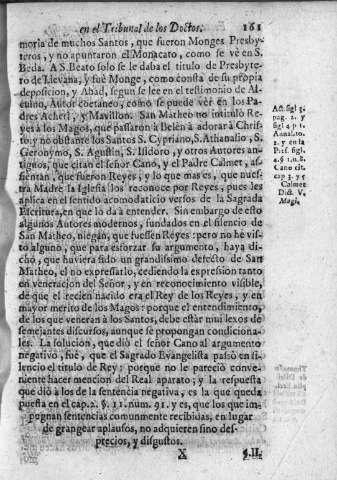 en el Tribunal de los Doctos. 161
moria de muchos Santos, que fueron Monges Presby-
teros, y no apuntaron el Monacato, como se vè en S.
Beda. A S. Beato solo se le daba el titulo de Presbyte-
ro de Lievana, y fuè Monge, como consta de su propia
deposicion, y Abad, segun se lee en el testimonio de Al-
cuino, Autor coetaneo, como se puede ver en los Pa-
dres Acheri, y Mavillon. San Matheo no intitulò Re-
yes à los Magos, que passaron à Belèn à adorar à Chris-
to, y no obstante los Santos S. Cypriano, S. Athanasio, S.
Geronymo, S. Agustin, S. Isidoro, y otros Autores an-
tiguos, que citan el señor Cano, y el Padre Calmet, as-
sientan, que fueron Reyes; y lo que mas es, que nues-
tra Madre la Iglesia los reconoce por Reyes, pues les
aplica en el sentido acomodaticio versos de la Sagrada
Escritura, en que lo dà à entender. Sin embargo de esto
algunos Autores modernos, fundados en el silencio de
San Matheo, niegan, que fuessen Reyes: pero no he vis-
to alguno, que para esforzar su argumento, haya di-
cho, que huviera sido un grandissimo defecto de San
Matheo, el no expressarlo, cediendo la expression tanto
en veneracion del Señor, y en reconocimiento visible,
de que el recien nacido era el Rey de los Reyes, y en
mayor merito de los Magos: porque el entendimiento,
de los que veneran à los Santos, debe estàr mui lexos de
semejantes discursos, aunque se propongan condiciona-
les. La solucion, que diò el señor Cano al argumento
negativo, fuè, que el Sagrado Evangelista passò en si-
lencio el titulo de Rey: porque no le pareciò conve-
niente hacer mencion del Real aparato; y la respuesta
que diò à los de la sentencia negativa, es la que queda
puesta en el cap. 2. §. 11. num. 91. y es, que los que im-
pugnan sentencias comunmente recibidas, en lugar
de grangear aplausos, no adquieren sino des-
precios, y disgustos.
X §. II.
Act. sigl 3.
pag. 2. y
sigl 4 p 1.
Annal. to.
2. y en la
Præf. sigl.
4. § 1. n. 8.
Cano cit.
cap 3. y 5
Calmet
Dict. V.
Magi.